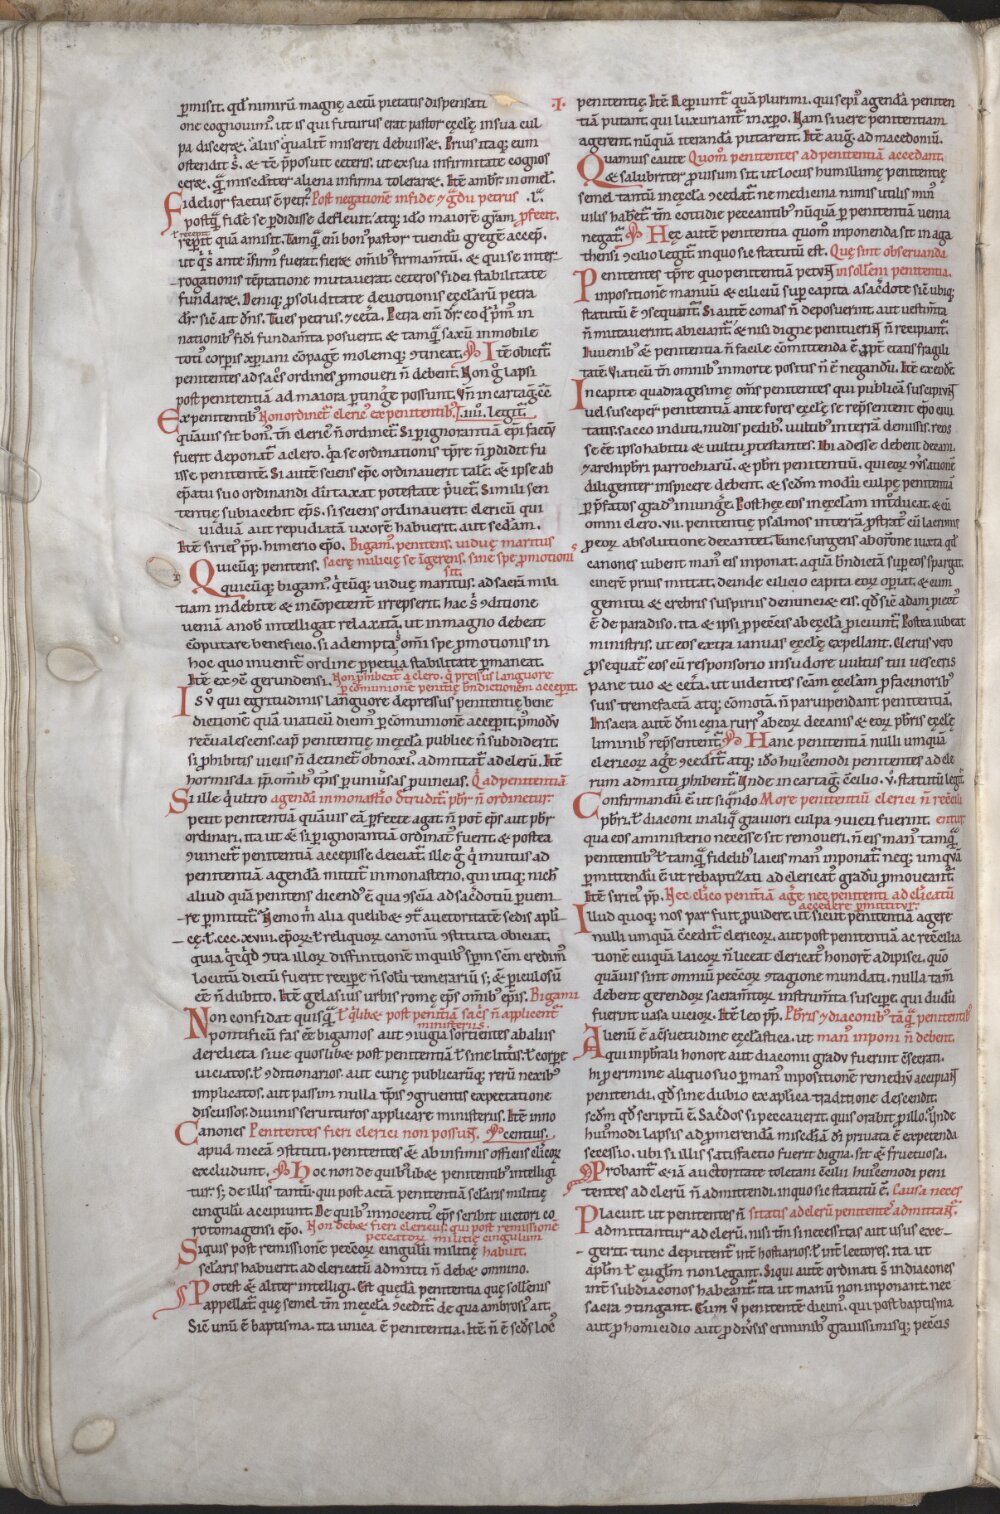 ꝑmisit. qd̃ nimirũ magnę actũ pietatis dispensati
one cognouimꝰ. ut is qui futurus erat pastor ęcclę in sua cul
pa disceret. aliis qualit̃ misereri debuisset. Prius itaq; eum
ostendit s̃. & tc̃ p̃posuit ceteris. ut ex sua infirmitate cognos
ceret. q̃ miscditer aliena infirma toleraret. Itẽ ambr̃. in omel̃.
Fidelior factus ẽ petrꝰ. Post negationẽ in fide ⁊ g̃du petrus
postq̃ fidẽ se ꝑdidisse defleuit. atq; idõ maiorẽ gr̃am ꝓfecit.
repperit quã amisit. Tamq̃ enĩ bonꝰ pastor tuendũ gregẽ accep̃.
ut q̃ s̃ ante ĩfirmꝰ fuerat. fieret om̃ibꝰ firmam̃tũ. & qui se inter
rogationis tẽptatione mutauerat. ceteros fidei stabilitate
fundaret. Deniq; ꝓ soliditate deuotionis ęcclarũ petra
dr̃. sic̃ ait dñs. Tu es petrus. ⁊ cet̃a. Petra em̃ dr̃. eo qd̃ p̃mꝰ in
nationibꝰ fidei fundam̃ta posuerit. & tamq̃ saxũ inmobile
totiꝰ corpis xp̃iani cõpagẽ molemq; ⁊tineat. Itẽ obicit̃
penitentes ad sac̃s ordines ꝓmoueri ñ debent. Non g̃ lapsi
post penitentiã ad maiora ꝑting̃e possunt. Vñ in cartag̃. c̃c̃
Ex penitentibꝰ Non ordinet̃ clericꝰ ex penitentibꝰ. .iiii. legit̃.
quãuis sit bonꝰ. tñ clericꝰ ñ ordinet̃. Si ꝑ ignorantiã ep̃i factũ
fuerit deponat̃ a clero. q̃a se ordinationis tp̃re ñ ꝓdidit fu
isse penitentẽ. Si autẽ sciens ep̃c ordinauerit talẽ. & ipse ab
ep̃atu suo ordinandi dũtaxat potestate p̃uet̃. Simili sen
tentię subiacebit ep̃s. si sciens ordinauerit clericũ qui
uiduã aut repudiatã uxorẽ habuerit. aut sed̃am.
Itẽ siriciꝰ pp. himerio ep̃o. Bigamꝰ. penitens. uiduę maritus
Quicũq; penitens. sacrę milicię se ĩgerens. sine spe ꝓmotionis
sit.
quicũq; bigamꝰ. q̃cũq; uiduę maritus. ad sacrã mili
tiam indebite & incõpetent̃ irrepserit. hac s̃ ⁊ditione
ueniã a nob̃ intelligat relaxatã. ut in magno debeat
cõputare beneficio. si adempta s̃ om̃i spe ꝓmotionis in
hoc quo inuenit̃ ordine ꝑpetua stabilitate ꝑmaneat.
Itẽ ex ⁊c̃ gerundensi. Non ꝓhibeat̃ a clero. q̃ pressus languore
ꝑ comunionẽ penitẽtię bñdictionem accepit.
Is ṽo qui egritudinis languore depressus penitentię bene
dictionẽ quã uiaticũ dicimꝰ ꝑ comunionẽ accepit. ⁊ p̃modũ
rec̃ualescens. cap̃ penitentię in ęccla publice ñ subdiderit.
si ꝓhibitis uiciis ñ detinet̃ obnoxiꝰ. admittat̃ ad clerũ. Itẽ
hormisda pp. om̃ibꝰ ep̃is ꝑ uniũsas ꝓuincias. Q̃ ad penitentiã
Si ille q̃ ultro agendã in monast̃io d̃trudit̃. pbr̃ ñ ordinetur.
petit penitentiã quãuis eã ꝑfecte agat. ñ pot̃ ep̃s aut pbr̃
ordinari. ita ut & si ꝑ ignorantiã ordinatꝰ fuerit. & postea
⁊uincit̃ penitentiã accepisse. deiciat̃. ille g̃ q̃ inuitus ad
penitentiã agendã mittit̃ in monasterio, qui utiq; nich̃
aliud quã penitens dicendꝰ ẽ qua ⁊sciã ad sac̃dotiũ ꝑuen
re ꝑmittit̃. Nemo m̃ alia quelibet ⁊t̃ auctoritatẽ sedis apl̃i
cę. ł ccc.xviii. ep̃orꝝ. ł reliquorꝝ canonũ ⁊stituta obiciat.
quia q̃cqd̃ ⁊tra illorꝝ diffinitionẽ in quibꝰ sp̃m sc̃m credimꝰ
locutũ dictũ fuerit recipe ñ solũ temerariũ s; & ꝑiculosũ
eẽ ñ dubito. Itẽ gelasius urbis romę ep̃s om̃ibꝰ ep̃is. Bigami
Non confidat quisq̃ ł q̃libet post penitẽtiã sac̃s ñ applicent̃
ministeriis.
pontificũ fas eẽ bigamos aut ⁊iugia sortientes ab aliis
derelicta siue quoslibet post penitentiã ł sine litt̃is. ł corpe
uiciatos. ł ⁊ditionarios. aut curię publicarũq; rerũ nexibꝰ
implicatos. aut passim nulla tp̃is ⁊gruentis expectatione
discussos. diuinis seruituros applicare ministeriis. Itẽ inno
Canones Penitentes fieri clerici non possunt. centius.
apud niceã ⁊stituti. penitentes & ab infimis officiis cl̃icorꝝ
excludunt. Hoc non de quibꝰlibet penitentibꝰ intelligi
tur. s; de illis tantũ. qui post actã penitentiã sclaris militię
cingulũ accipiunt. De quibꝰ innocentiꝰ ep̃s scribit uictori co
rotomagensi ep̃o. Non debet fieri clericus. qui post remissionẽ
peccatorꝝ militię cingulum
Siquis post remissionẽ pecc̃orꝝ cingulũ militię habuit.
sclaris habuerit. ad clericatũ admitti ñ debet omnino.
Potest & aliter intelligi. Est quędã penitentia quę sollẽnis
appellat̃. quę semel tm̃ in ęccla ⁊cedit̃. de qua ambrosiꝰ ait.
Sic̃ unũ ẽ baptisma. ita unica ẽ penitentia. Itẽ ñ ẽ sc̃ds locꝰ
.I.
penitentię. Itẽ. Reperiunt̃ quã plurimi. qui sepiꝰ agendã peniten
tiã putant. qui luxuriant̃ in xp̃o. Nam si uere penitentiam
agerent. nũquã iterandã putarent. Itẽ aug̃. ad macedoniũ.
Quamuis caute Quom̃ penitentes ad penitentiã accedant.
& salubriter ꝓuisum sit. ut locus humillimę penitentię
semel tantũ in ęccla ⁊cedat̃. ne medicina nimis utilis minꝰ
uilis habet̃. tm̃ cottidie peccantibꝰ nũquã ꝑ penitentiã uenia
negat̃. Hęc autẽ penitentia quom̃ inponenda sit in aga
thensi ⁊cilio legit̃. in quo sic statutũ est. Quę sint obseruanda
Penitentes tp̃re quo penitentiã petunt in sollẽni penitentia.
inpositionẽ manuũ & ciliciũ suꝑ capita a sac̃dote sic̃ ubiq;
statutũ ẽ ⁊sequant̃. Si autẽ comas ñ deposuerint. aut uestim̃ta
ñ mutauerint. abiciant̃. & nisi digne penituerint ñ recipiant̃.
Iuuenibꝰ & penitentia ñ facile cõmittenda ẽ. ꝓpt̃ etatis fragili
tatẽ. Viaticũ tm̃ omnibꝰ in morte positis ñ ẽ negandũ. Itẽ ex eodẽ.
In capite quadragesimę om̃s penitentes qui publicã suscipiunt
uel susceper̃ penitentiã ante fores ęcclę se rep̃sentent ep̃o ciui
tatis. sacco induti, nudis pedibꝰ. uultibꝰ in terrã demissis. reos
se eẽ ipso habitu & uultu ꝓtestantes. Ibi adesse debent decani.
⁊ archipbr̃i parrochiarũ. & pbr̃i penitentiũ. qui eorꝝ ⁊ũsationẽ
diligenter inspicere debent. & sc̃dm modũ culpę penitentiã
ꝑ p̃fatos gradꝰ iniung̃e. Post hęc eos in ęcclam int̃ducat. & cũ
omni clero. vii. penitentię psalmos in terrã prostratꝰ cũ lacrimis
ꝓ eorꝝ absolutione decantet. Tunc surgens ab or̃one iuxta qd̃
canones iubent manꝰ eis inponat. aquã b̃ndictã suꝑ eos spargat.
cinerẽ prius mittat. deinde cilicio capita eorꝝ oꝑiat. & cum
gemitu & crebris suspiriis denunciet eis. qd̃ sic̃ adam ꝓiectꝰ
ẽ de paradiso. ita & ipsi ꝓ pecc̃is ab ęccla ꝓiciunt̃. Postea iubeat
ministris. ut eos extra ianuas ęcclę expellant. Clerus uero
ꝓsequat̃ eos cũ responsorio in sudore uultus tui uesceris
pane tuo & cet̃a. ut uidentes sc̃am ęcclam ꝓ facinoribꝰ
suis tremefactã atq; cõmotã. ñ paruipendant penitentiã.
In sacra autẽ dñi cęna rursꝰ ab eorꝝ decanis & eorꝝ pbr̃is ęcclę
liminibꝰ rep̃sentent̃. Hanc penitentiã nulli umquã
clericorꝝ ag̃e ⁊cedit̃. atq; idõ hui̾cemodi penitentes ad cle
rum admitti ꝓhibent̃. Vnde in cartag̃. c̃cilio .v. statutũ legit̃.
Confirmandũ ẽ ut si q̃ndo More penitentiũ clerici ñ rec̃cili
entur.
pbr̃i. ł diaconi in aliq̃ grauiori culpa ⁊uicti fuerint.
qua eos a ministerio necesse sit remoueri. ñ eis manꝰ tamq̃
penitentibꝰ. ł tamq̃ fidelibꝰ laicis manꝰ inponat̃. neq; umquã
ꝑmittendũ ẽ ut rebaptizati ad clericatꝰ gradũ ꝓmoueant̃.
Itẽ siriciꝰ pp. Nec cl̃ico penitẽtiã ag̃e nec penitenti ad cl̃icatũ
accedere ꝑmittitur.
Illud quoq; nos par fuit ꝓuidere. ut sicut penitentiã agere
nulli umquã c̃cedit̃ clericorꝝ. aut post penitentiã ac rec̃cilia
tionẽ cuiquã laicorꝝ ñ liceat clericatꝰ honorẽ adipisci. quo
quãuis sint omniũ pecc̃orꝝ ⁊tagione mundati. nulla tam̃
debent gerendorꝝ sacram̃torꝝ instrum̃ta suscipe. qui dudũ
fuerint uasa uiciorꝝ. Itẽ leo pp. Pbr̃is ⁊ diaconibꝰ tãq̃ penitentibꝰ
Alienũ ẽ a c̃suetudine ęcclastica. ut manꝰ inponi ñ debent.
qui in pbr̃ali honore aut diaconii gradu fuerint c̃secrati.
hi ꝓ crimine aliquo suo ꝑ manꝰ inpositionẽ remediũ accipiant
penitendi. qd̃ sine dubio ex aplica traditione descendit.
sc̃dm qd̃ scriptũ ẽ. Sac̃dos si peccauerit. quis orabit ꝓ illo. Vnde
hui̾modi lapsis ad ꝓmerendã misc̃diã di̾ priuata ẽ expetenda
secessio. ubi si illis satisfactio fuerit digna. sit & fructuosa.
Probant̃ & iã auctoritate toletani c̃cilii hui̾cemodi peni
tentes ad clerũ ñ admittendi. in quo sic statutũ ẽ. Causa neces
Placuit ut penitentes ñ sitatis ad clerũ penitentẽ admittant̃.
admittantur ad clerũ. nisi tm̃ si necessitas aut usus exe
gerit. tunc deputent̃ int̃ hostiarios. ł int̃ lectores. ita ut
aplm̃ ł euglm̃ non legant. Si qui autẽ ordinati s̃ in diacones
int̃ subdiaconos habeant̃. ita ut manũ non inponant. nec
sacra ⁊tingant. Cum ṽ penitentẽ dicimꝰ. qui post baptisma
aut pro homicidio aut ꝓ diũsis criminibꝰ grauissimisq; pecc̃is